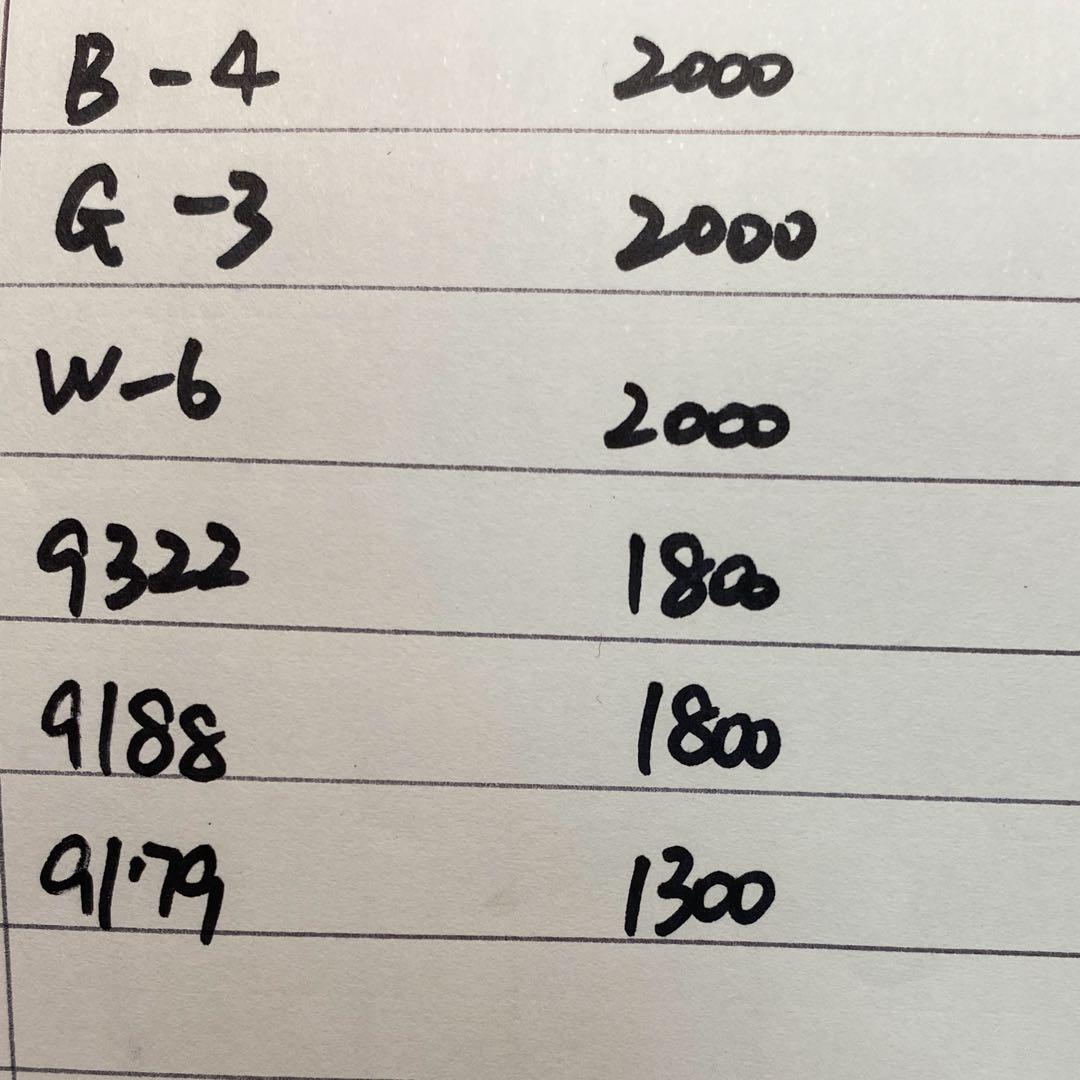 B-4 2000
G-3 2000
W-6 2000
9322 1800
9188 1800
9179 1300